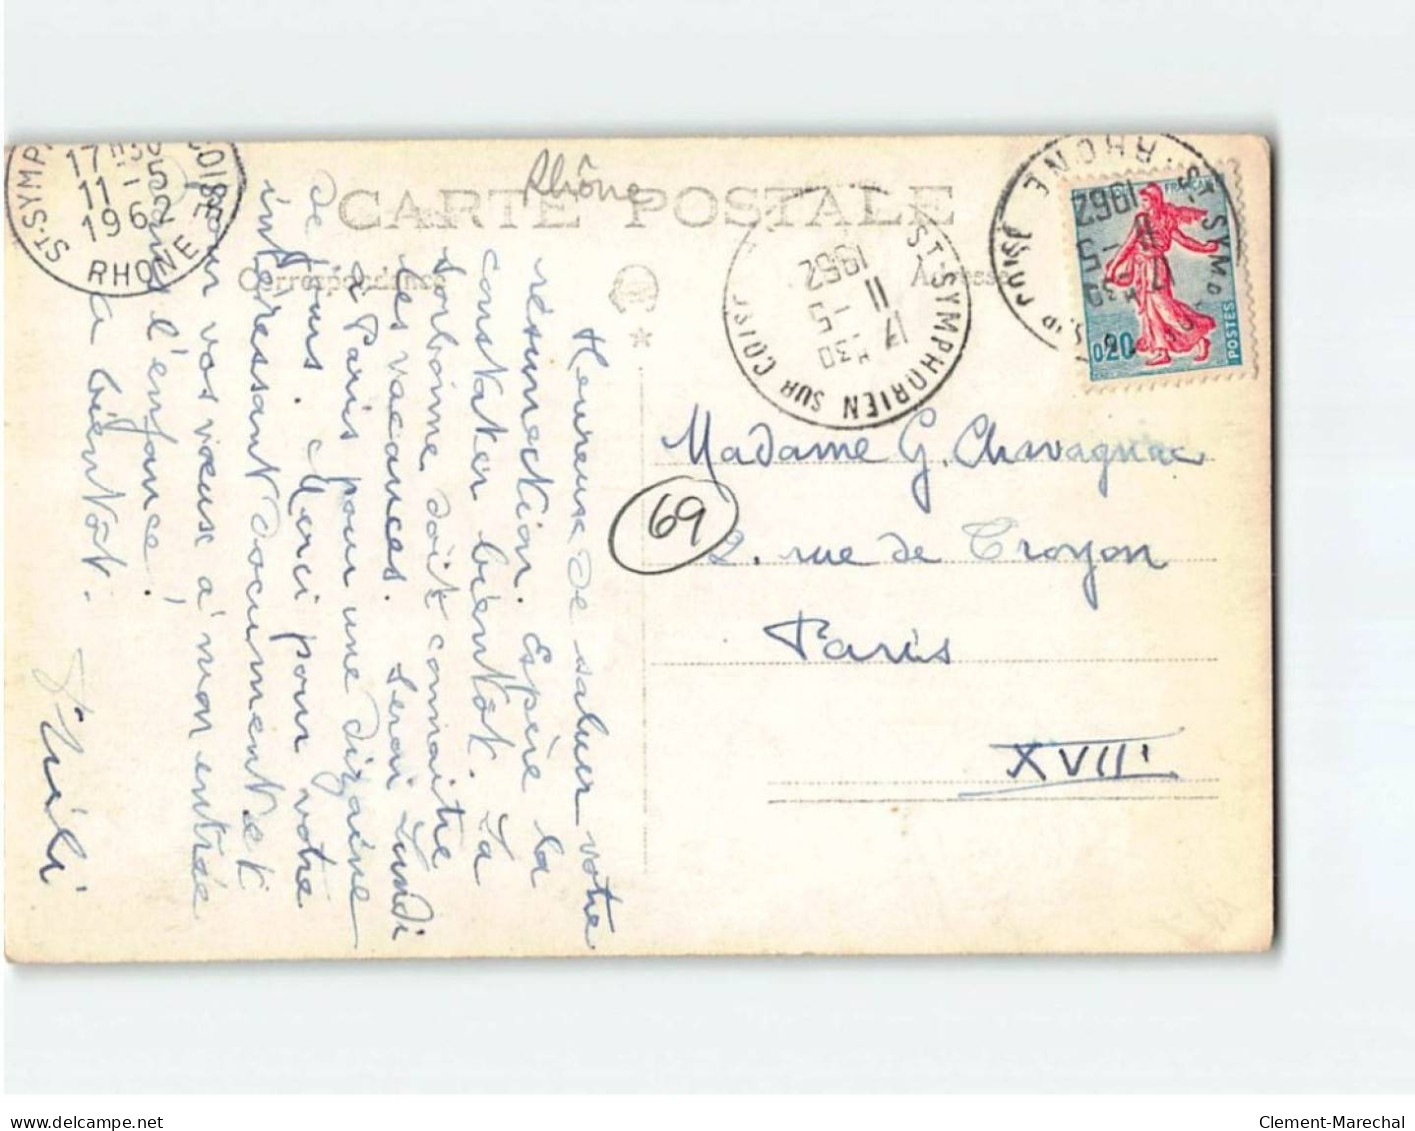 CARTE POSTALE
Rhône
Correspondance
Adresse
ST-SYMP COISE
17H30
11-5
1962
RHONE
ST-SYMPHORIEN SUR COISE
17H30
11-5
1962
RHONE
1962
11-5
17H30
FRANÇAISE
0,20
POSTES
Heureuse de saluer votre
résurrection. Espère la
constater bientôt. La
Sorbonne doit connaître
les vacances. Serai Lundi
à Paris pour une dizaine
de jours. Merci pour votre
intéressant document et
pour vos vœux à mon entrée
l'enfance !
A bientôt.
Madame G. Chavagnac
69
2. rue de Troyon
Paris
XVIIe
delcampe.net
Clement-Marechal